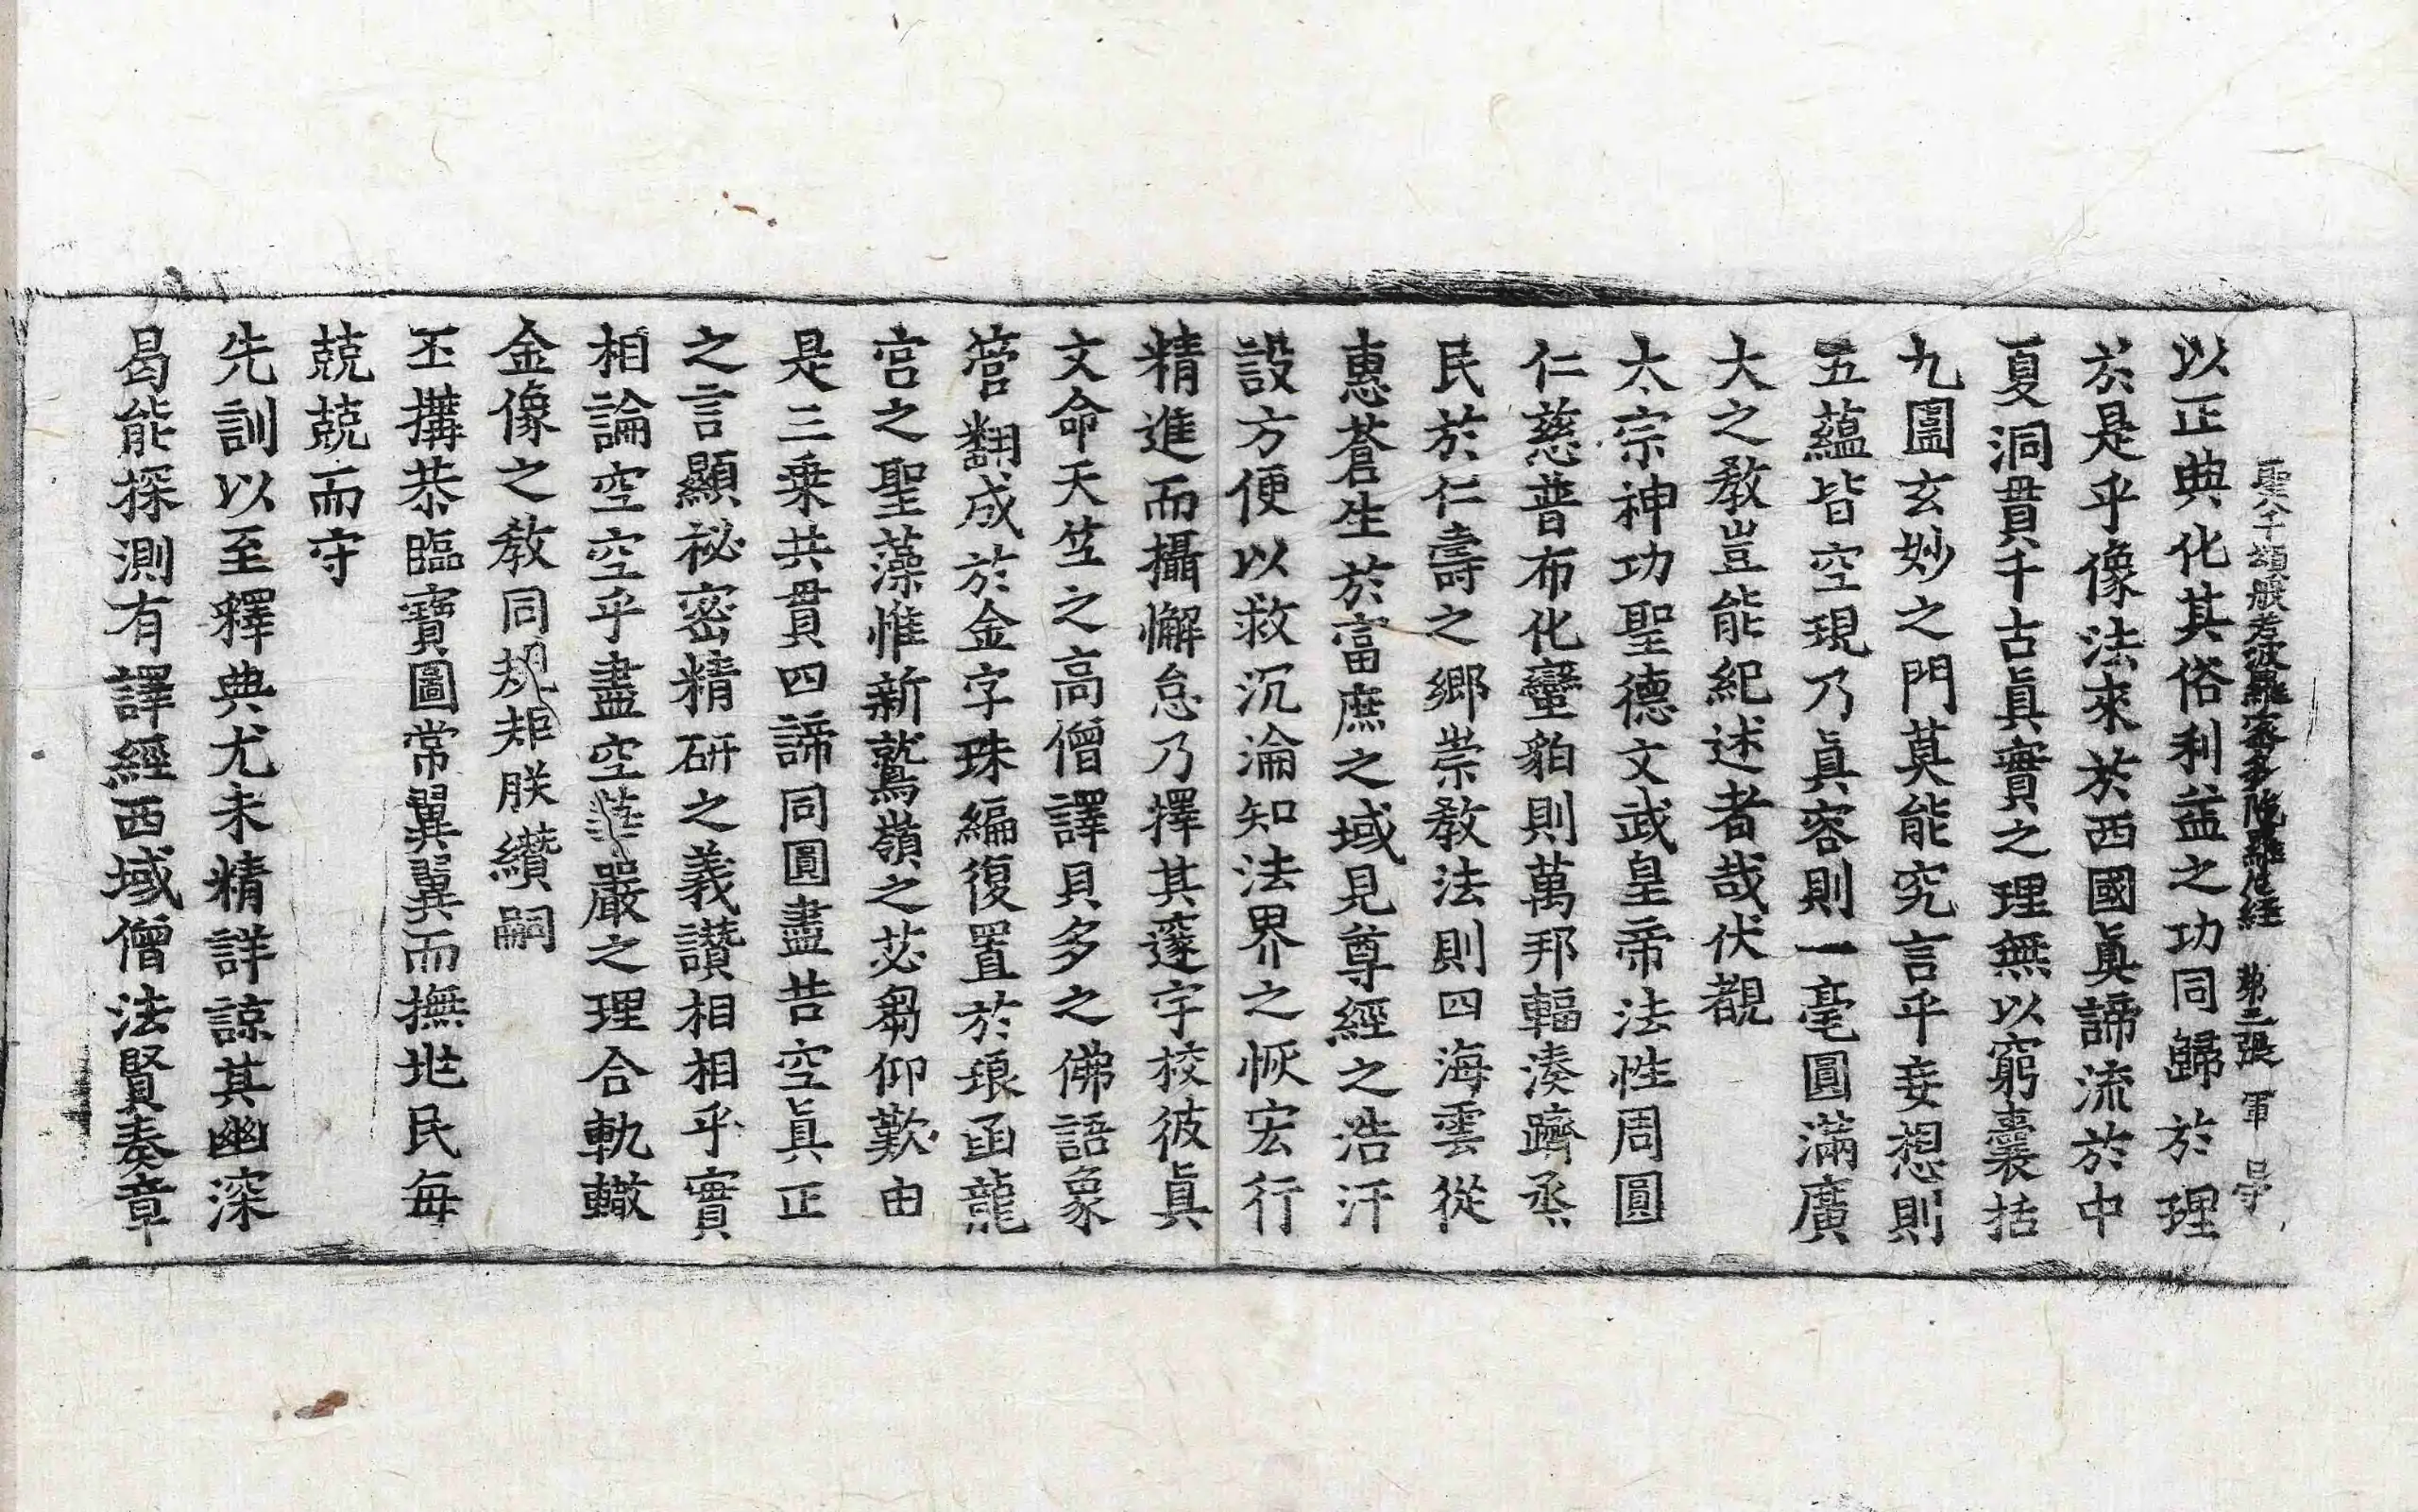 聖八千頌般若波羅蜜多陀羅尼經 第二張 軍
以正典化其俗利益之功同歸於理
於是乎像法來於西國眞諦流於中
夏洞貫千古眞實之理無以窮囊括
九圍玄妙之門莫能究言乎妄想則
五蘊皆空現乃眞容則一毫圓滿廣
大之敎豈能紀述者哉伏覩
太宗神功聖德文武皇帝法性周圓
仁慈普布化蠻貊則萬邦輻湊躋烝
民於仁壽之鄕崇敎法則四海雲從
惠蒼生於富庶之域見尊經之浩汗
設方便以救沉淪知法界之恢宏行
精進而攝懈怠乃擇其邃宇校彼眞
文命天竺之高僧譯貝多之佛語象
管翻成於金字珠編復置於琅函龍
宮之聖藻惟新鷲嶺之苾芻仰歎由
是三乘共貫四諦同圓盡昔空眞正
之言顯祕密精硏之義讚相相乎實
相論空空乎盡空莊嚴之理合軌轍
金像之敎同規矩朕纘嗣
丕搆恭臨寶圖常翼翼而撫兆民每
兢兢而守
先訓以至釋典尤未精詳諒其幽深
曷能探測有譯經西域僧法賢奏章